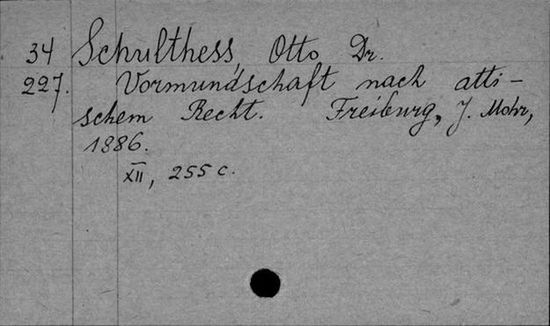 34 Schulthess, Otto Dr.
227. Vormundschaft nach atti-
schem Recht. Freiburg, J. Mohr,
1886.
XII, 255 c.